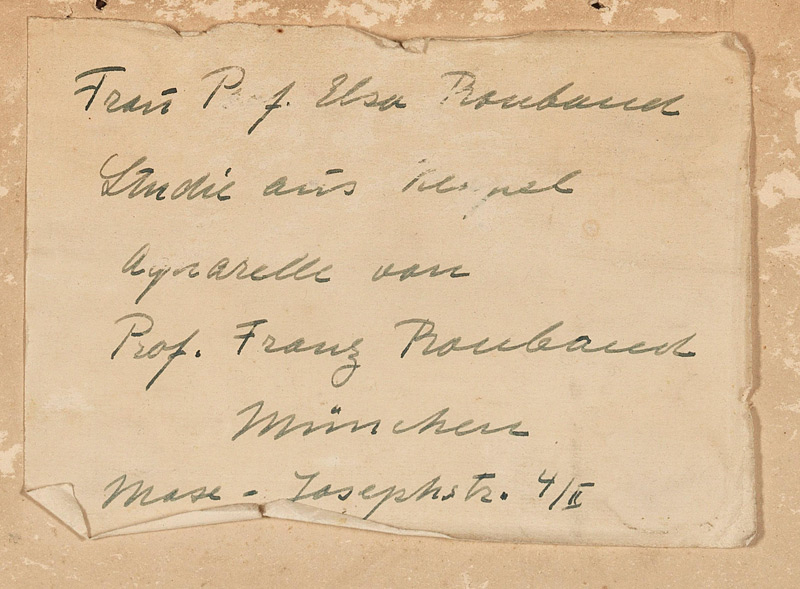 Frau Prof. Elsa Roubaud
Studie aus
Aquarelle von
Prof. Franz Roubaud
München
Josephstr. 4/II